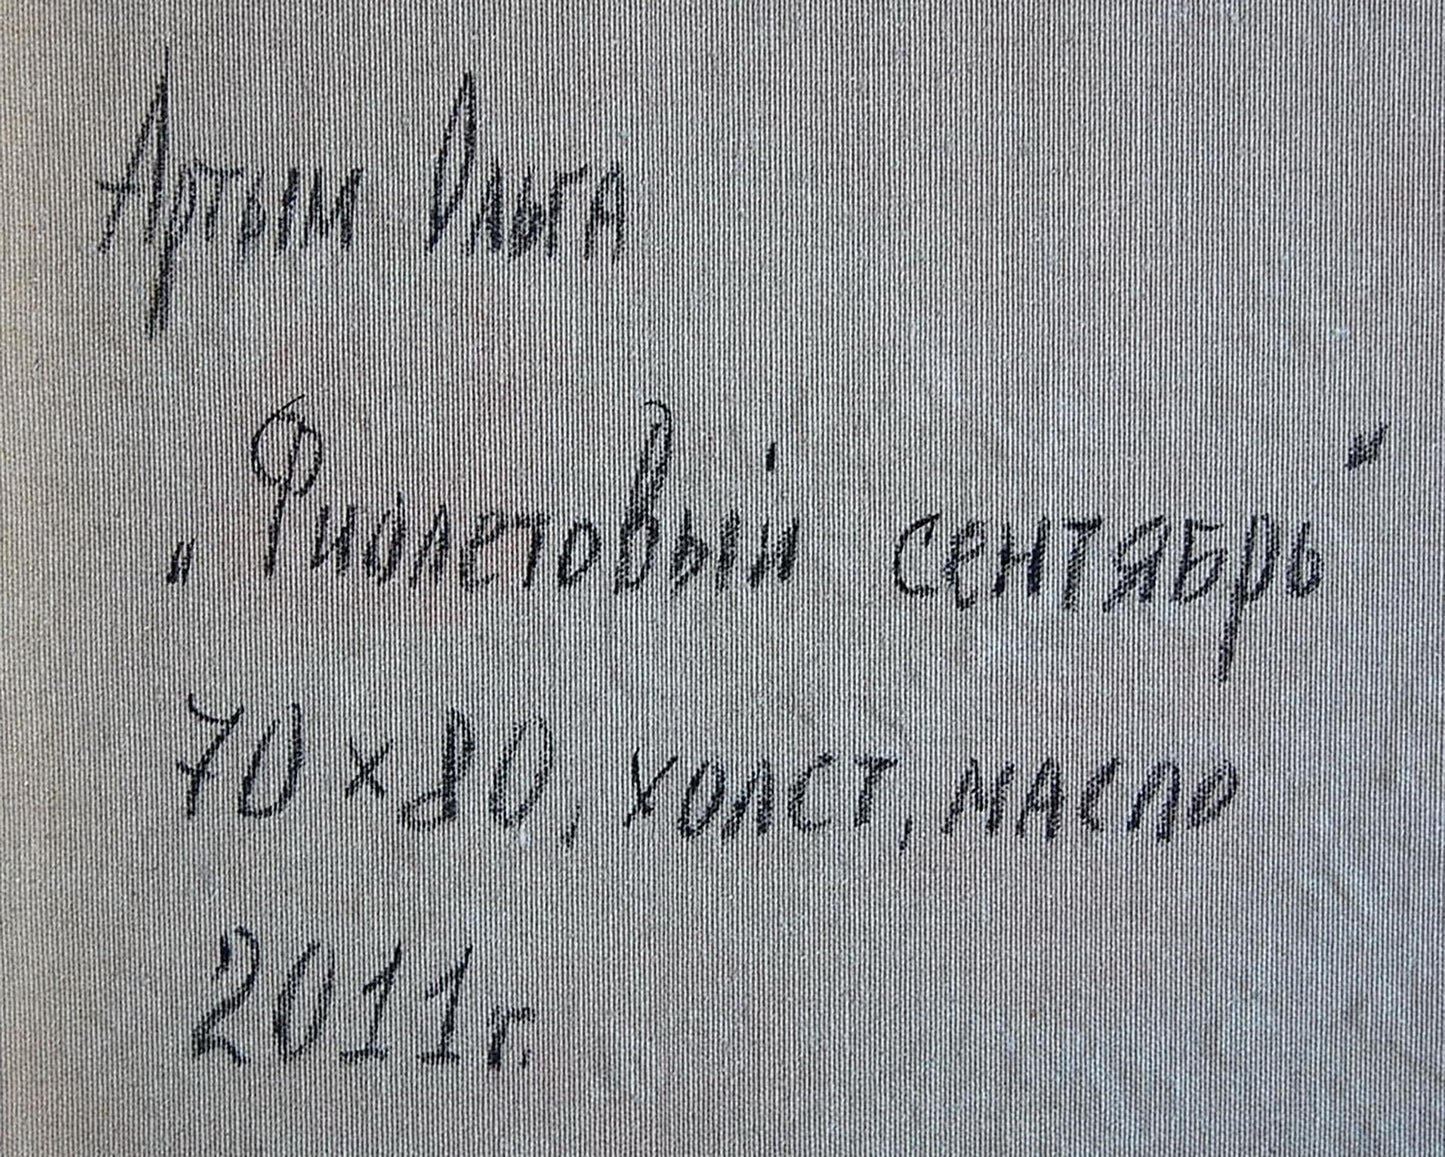 Артым Ольга
„Фиолетовый сентябрь“
70×80, холст, масло
2011г.